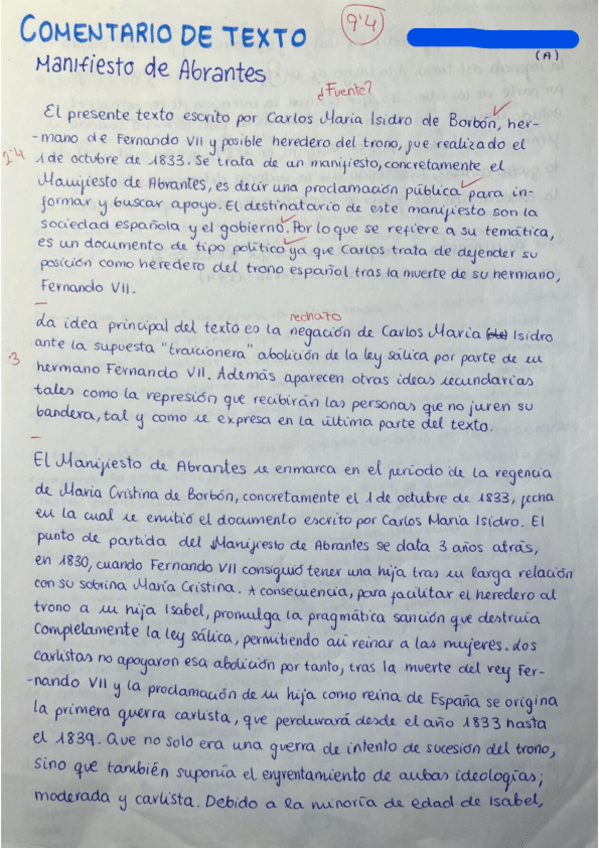 9'4
COMENTARIO DE TEXTO
(A)
Manifiesto de Abrantes
¿Fuente?
El presente texto escrito por Carlos Maria Isidro de Borbón, her-
-mano de Fernando VII y posible heredero del trono, fue realizado el
2'4
1 de octubre de 1833. Se trata de un manifiesto, concretamente el
Manifiesto de Abrantes, es decir una proclamación pública para in-
formar y buscar apoyo. El destinatario de este manifiesto son la
sociedad española y el gobierno. Por lo que se refiere a su temática,
es un documento de tipo político ya que Carlos trata de defender su
posición como heredero del trono español tras la muerte de su hermano,
Fernando VII.
rechazo
La idea principal del texto es la negación de Carlos Maria Isidro
ante la supuesta "traicionera" abolición de la ley sálica por parte de su
3
hermano Fernando VII. Además aparecen otras ideas secundarias
tales como la represión que recibirán las personas que no juren su
bandera, tal y como se expresa en la última parte del texto.
El Manifiesto de Abrantes se enmarca en el período de la regencia
de Maria Cristina de Borbón, concretamente el 1 de octubre de 1833, fecha
en la cual se emitió el documento escrito por Carlos Maria Isidro. El
punto de partida del Manifiesto de Abrantes se data 3 años atrás,
en 1830, cuando Fernando VII consiguió tener una hija tras su larga relación
con su sobrina María Cristina. A consecuencia, para facilitar el heredero al
trono a su hija Isabel, promulga la pragmática sanción que destruía
completamente la ley sálica, permitiendo así reinar a las mujeres. Los
carlistas no apoyaron esa abolición por tanto, tras la muerte del rey Fer-
-nando VII y la proclamación de su hija como reina de España se origina
la primera guerra carlista, que perdurará desde el año 1833 hasta
el 1839. Que no solo era una guerra de intento de sucesión del trono,
sino que también suponía el enfrentamiento de ambas ideologías;
moderada y carlista. Debido a la minoría de edad de Isabel,